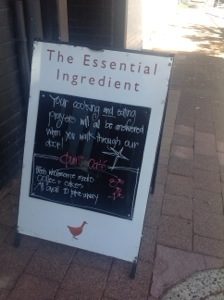 The Essential
Ingredient
Your cooking and eating
prayers will all be answered
when you walk through our
door!
Café
Fresh wholesome meals
Coffee + cakes
All Great to take away